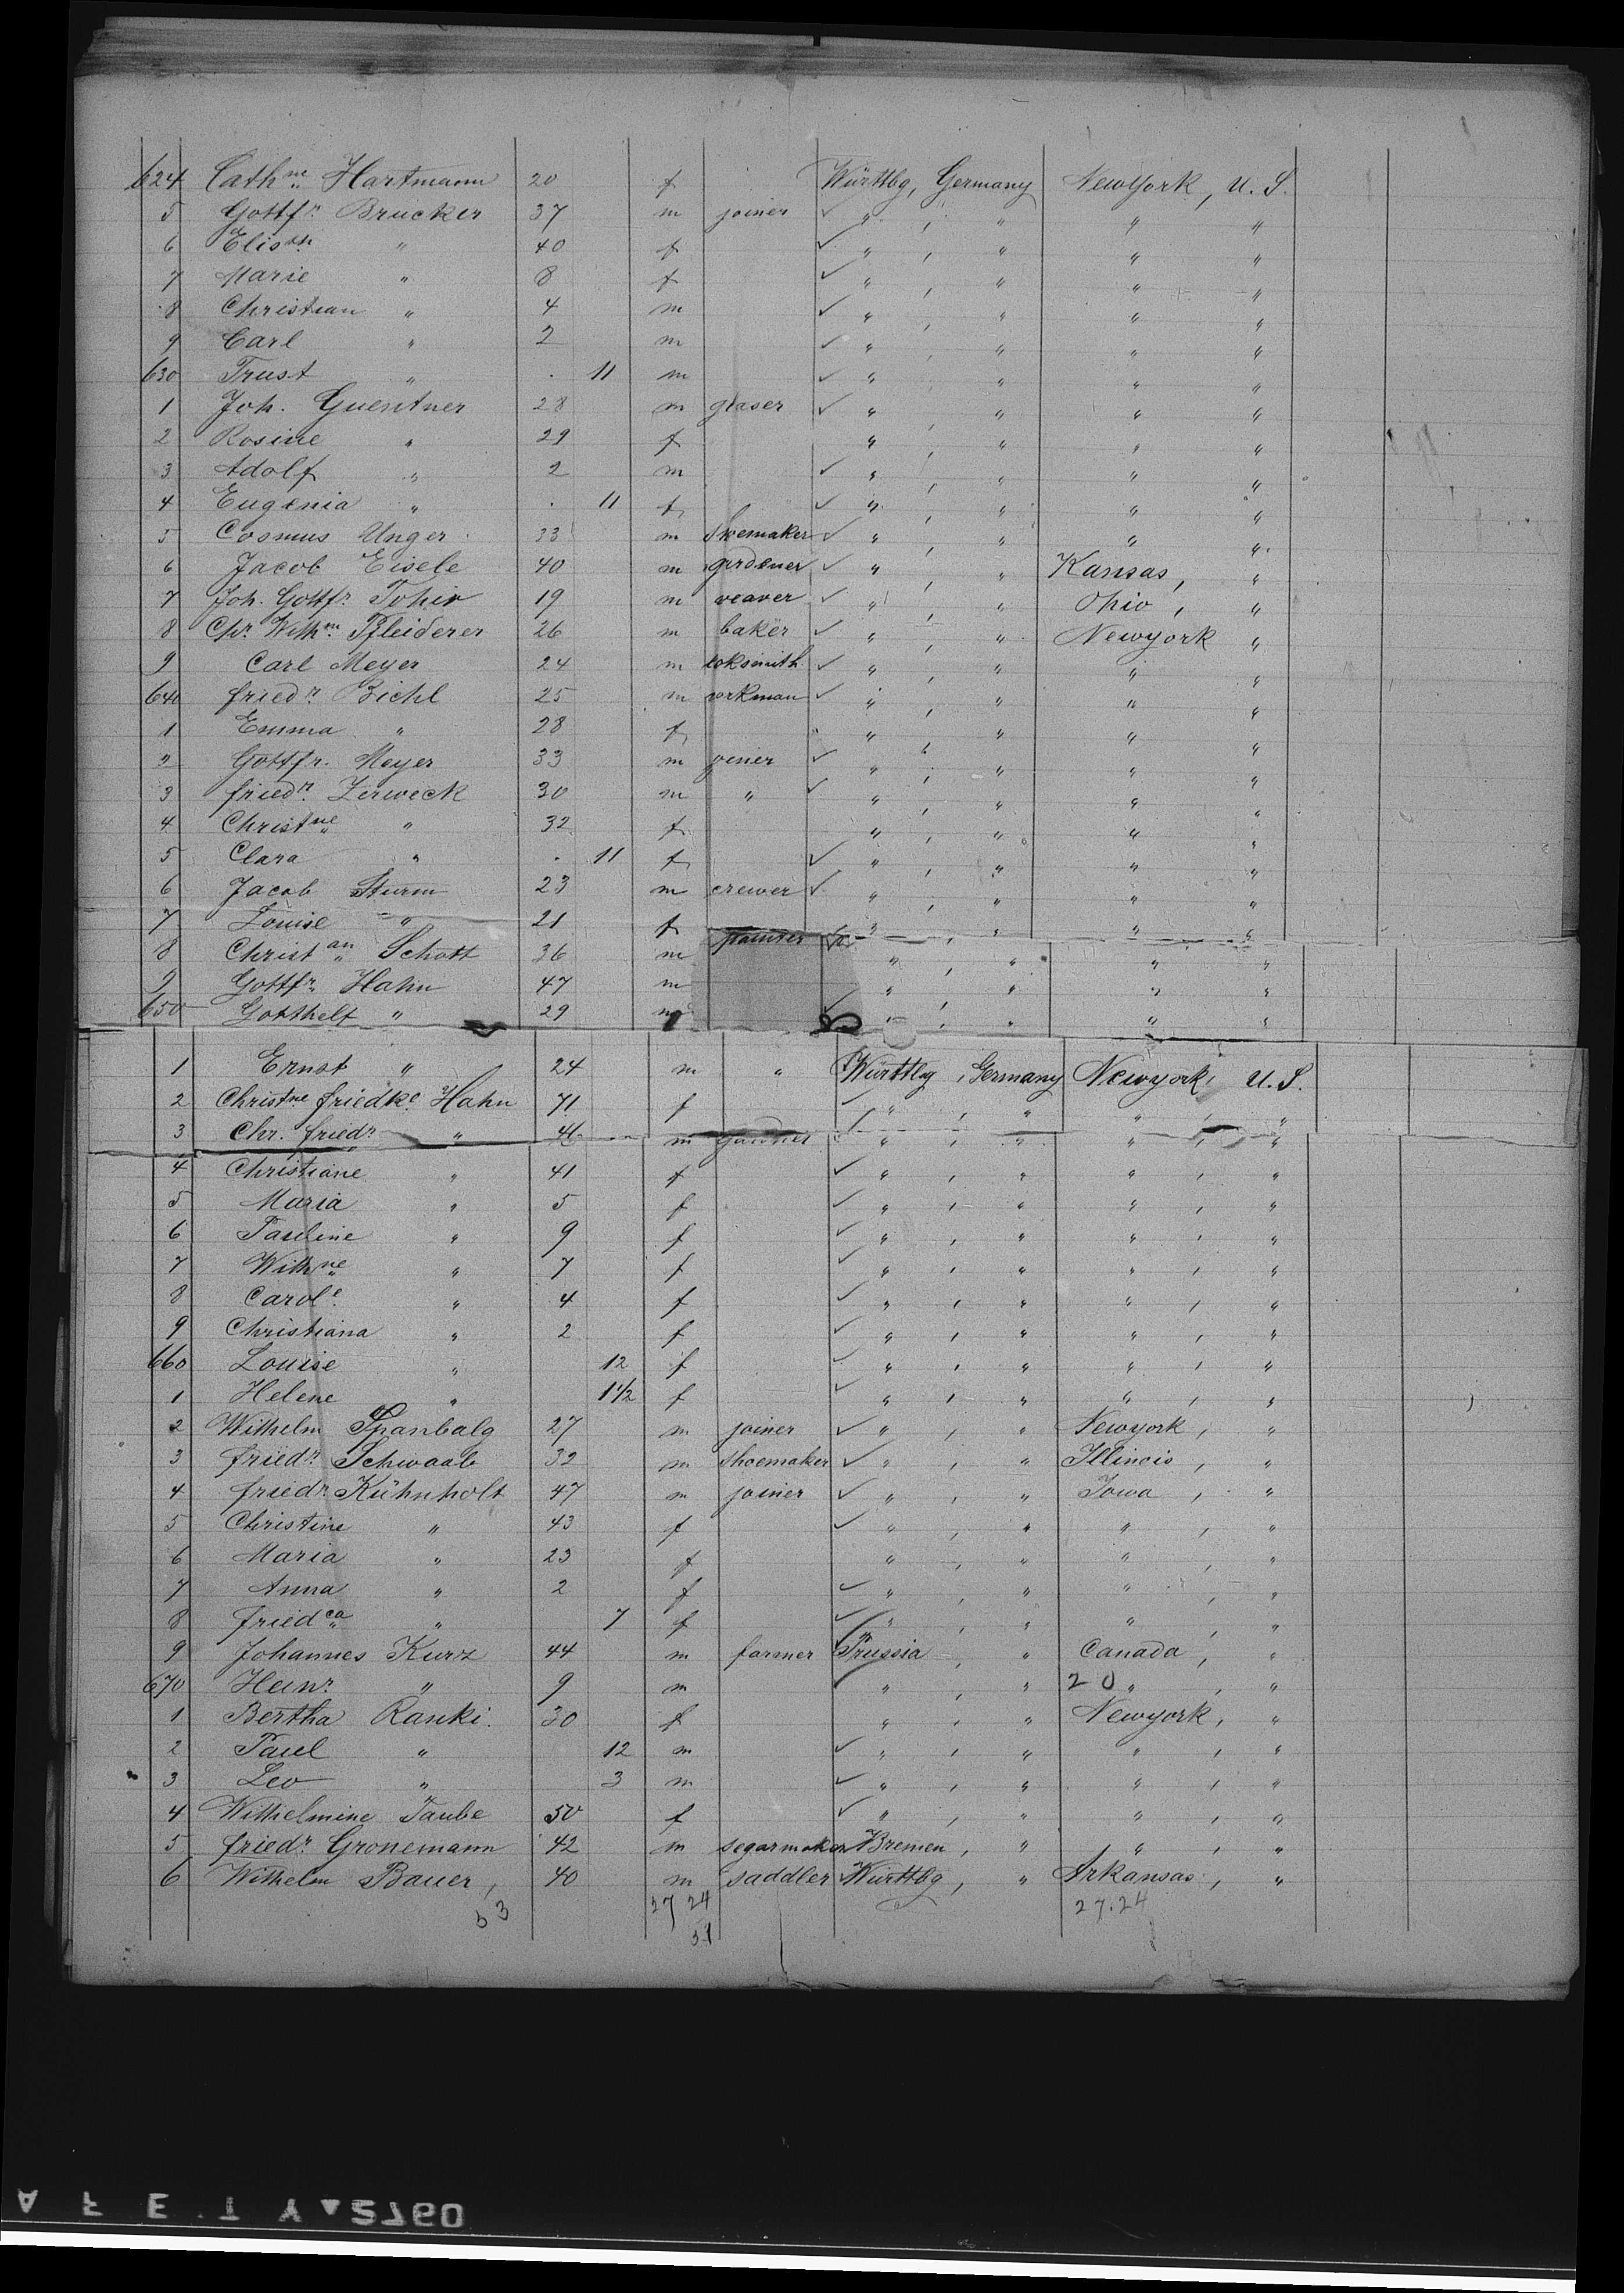 624 Cathne Hartmann 20 f Württbg, Germany NewYork, U. S.
5 Gottfr. Brucker 37 m joiner ✓ " , " " "
6 Elisth " 40 f ✓ " , " " "
7 Marie " 8 f ✓ " , " " "
8 Christian " 4 m ✓ " , " " "
9 Carl " 2 m ✓ " , " " "
630 Trust " . 11 m ✓ " , " " "
1 Joh. Guentner 28 m glaser ✓ " , " " "
2 Rosine " 29 f " , " " "
3 Adolf " 2 m ✓ " , " " "
4 Eugenia " . 11 f ✓ " , " " "
5 Cosmus Unger 33 m Shoemaker ✓ " , " " "
6 Jacob Eisele 40 m gardener ✓ " , " Kansas, "
7 Joh. Gottfr. 19 m weaver ✓ " , " Ohio, "
8 Chr. Wilhm. Pfleiderer 26 m baker ✓ " , " Newyork "
9 Carl Meyer 24 m loksmith ✓ " , " " "
640 friedr. Biehl 25 m workman ✓ " , " " "
1 Emma " 28 f " , " " "
" Gottfr. Meyer 33 m joiner ✓ " , " " "
3 friedr. Zerweck 30 m " ✓ " , " " "
4 Christne " 32 f " , " " "
5 Clara " . 11 f ✓ " , " " "
6 Jacob Sturm 23 m brewer ✓ " , " " "
7 Louise " 21 f " , " " "
8 Christan Schott 36 m " , " " "
9 Gottfr. Hahn 47 m " , " " "
650 Gotthelf " 29 m ✓ " , " " "
1 Ernst " 24 m " Württbg, Germany Newyork, U. S.
2 Christne friedke Hahn 71 f ✓ " , " " , "
3 Chr. friedr. " 46 m gardner ✓ " , " " , "
4 Christiane " 41 f ✓ " , " " , "
5 Maria " 5 f ✓ " , " " , "
6 Pauline " 9 f ✓ " , " " , "
7 Wilhne " 7 f ✓ " , " " , "
8 Carole " 4 f ✓ " , " " , "
9 Christiana " 2 f ✓ " , " " , "
660 Louise " 12 f ✓ " , " " , "
1 Helene " 1 1/2 f ✓ " , " " , "
2 Wilhelm Spanbalg 27 m joiner ✓ " , " Newyork, "
3 friedr. Schwaab 32 m shoemaker ✓ " , " Illinois, "
4 friedr. Kühnholt 47 m joiner ✓ " , " Iowa, "
5 Christine " 43 f ✓ " , " " , "
6 Maria " 23 f " , " " , "
7 Anna " 2 f ✓ " , " " , "
8 friedca " 7 f ✓ " , " " , "
9 Johannes Kurz 44 m farmer Prussia, " Canada, "
670 Heinr. " 9 m " , " 20 " , "
1 Bertha Ranki 30 f " , " Newyork, "
2 Paul " 12 m ✓ " , " " , "
3 Leo " 3 m ✓ " , " " , "
4 Wilhelmine Taube 50 f ✓ " , " " , "
5 friedr. Gronemann 42 m segarmaker Bremen, " " , "
6 Wilhelm Bauer, 40 m saddler Württbg, " Arkansas, "
53 27 24 27.24
51